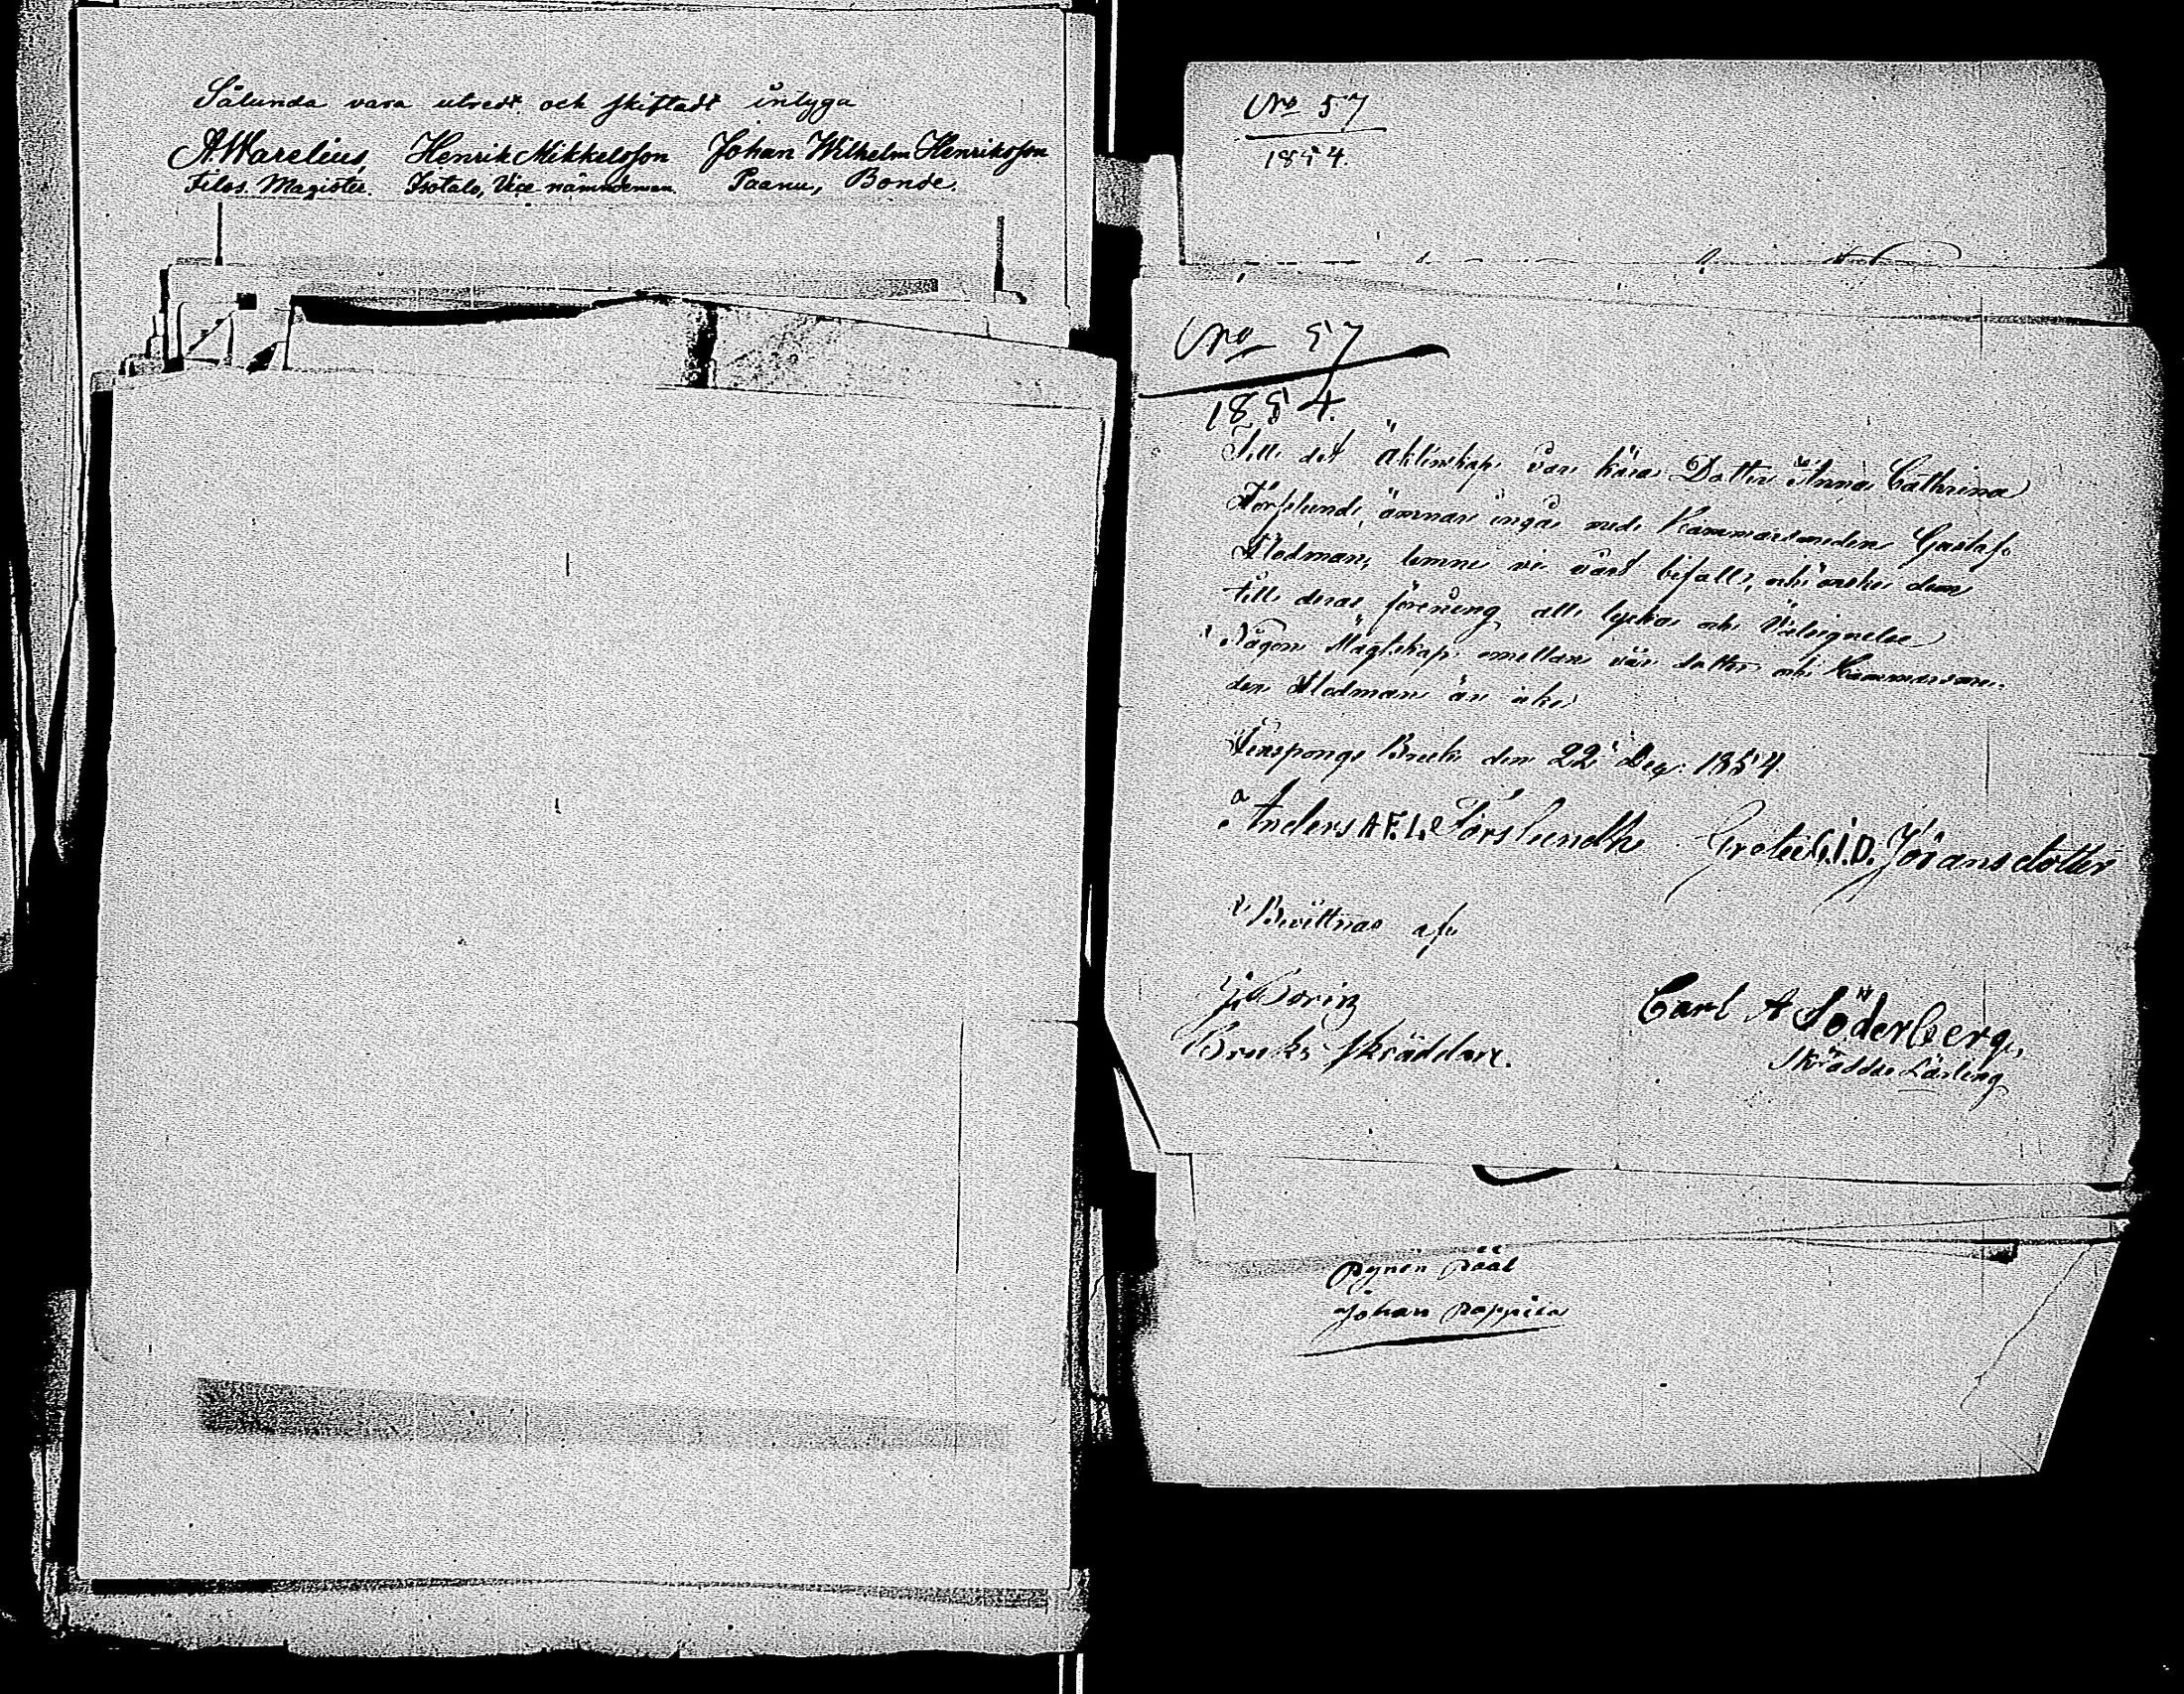 Sålunda vara utredt och skiftadt intyga
A. Warelius, Henrik Mikkelsson Johan Wilhelm Henriksson
Filos. Magister. Isotalo, Vice nämndeman. Paanu, Bonde.
No 57
1854.
No 57
1854.
Till det äktenskap vår kära Dotter Anna Cathrina
Förslund, ämnar ingå med Kammarsmeden Gustaf
Flodman, lemne vi vårt bifall, och önske dem
till deras förening all lycka och Välsignelse
Någon Mågskap emellan vår dotter och Kammarsme-
den Flodman är icke
Bruk den 22 Dec: 1854
Anders A.F.L. Förslund Greta G.I.D. Jöransdotter
Bevittnas af
Bruks skräddare.
Carl A Söderberg,
Skräddar Lärling
Johan Pappila